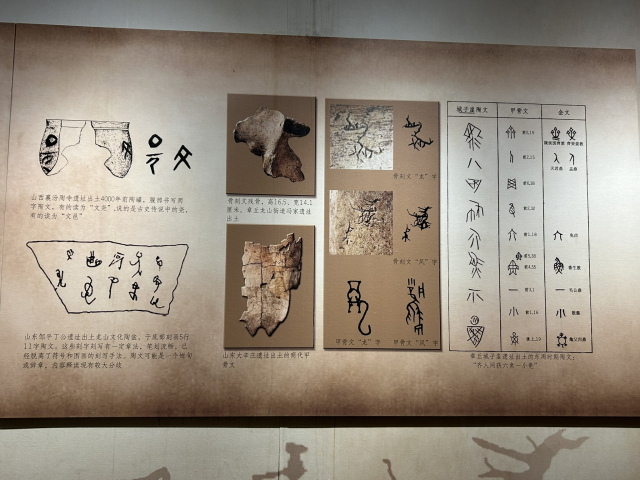 山西襄汾陶寺遗址出土4000年前陶罐，腹部书写两
字陶文，有的读为“文尧”，说的是古史传说中的尧，
有的读为“文邑”
山东邹平丁公遗址出土龙山文化陶盆，于底部刻画5行
11字陶文，这些刻字刻写有一定章法，笔划流畅，已
经脱离了符号和图画的刻写手法，陶文可能是一个短句
或辞章，应察释读现有较大分歧
骨刻文残骨，高16.5，宽14.2
厘米，章丘龙山街道马家遗址
出土
山东大辛庄遗址出土的商代甲
骨文
骨刻文“龙”字
骨刻文“凤”字
甲骨文“龙”字
甲骨文“凤”字
城子崖陶文 甲骨文 金文
章丘城子崖遗址出土的东周时期陶文：
“齐人网获六鱼一小龟”